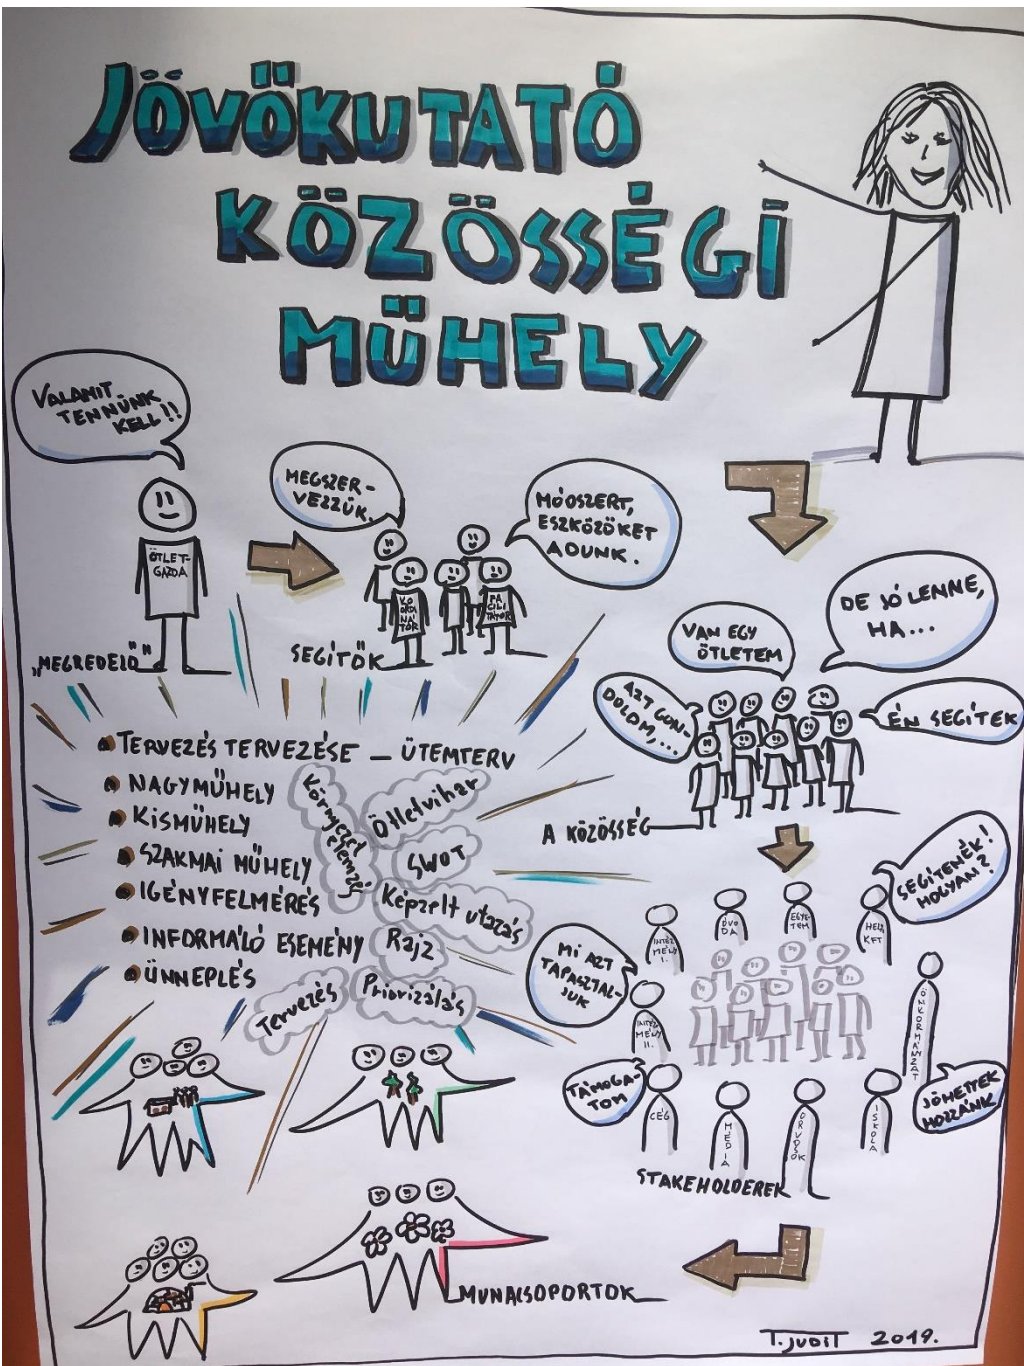 JÖVŐKUTATÓ
KÖZÖSSÉGI
MŰHELY
VALAMIT
TENNÜNK
KELL!!
ÖTLET-
GAZDA
„MEGREDELŐ"
MEGSZER-
VEZZÜK.
MÓDSZERT,
ESZKÖZÖKET
ADUNK.
KO
ORDI
NÁ
TOR
FA
CILI
TÁTOR
SEGÍTŐK
DE JÓ LENNE,
HA...
VAN EGY
ÖTLETEM
AZT GON-
DOLOM,...
ÉN SEGÍTEK
A KÖZÖSSÉG
TERVEZÉS TERVEZÉSE – ÜTEMTERV
NAGYMŰHELY
KISMŰHELY
SZAKMAI MŰHELY
IGÉNYFELMÉRÉS
INFORMÁLÓ ESEMÉNY
ÜNNEPLÉS
Környezet
elemzés
Ötletvihar
SWOT
Képzelt utazás
Rajz
Priorizálás
Tervezés
SEGÍTENÉK!
HOGYAN?
MI AZT
TAPASZTAL-
JUK
INTÉZ
MÉNY I.
ÓVO
DA
EGYE
TEM
HELYI
KFT
INTÉZ
MÉNY
II.
ÖNKORMÁNYZAT
TÁMOGA-
TOM
JÖHETTEK
HOZZÁNK
CÉG
MÉDIA
ORVOSOK
ISKOLA
STAKEHOLDEREK
MUNACSOPORTOK
T. JUDIT 2019.